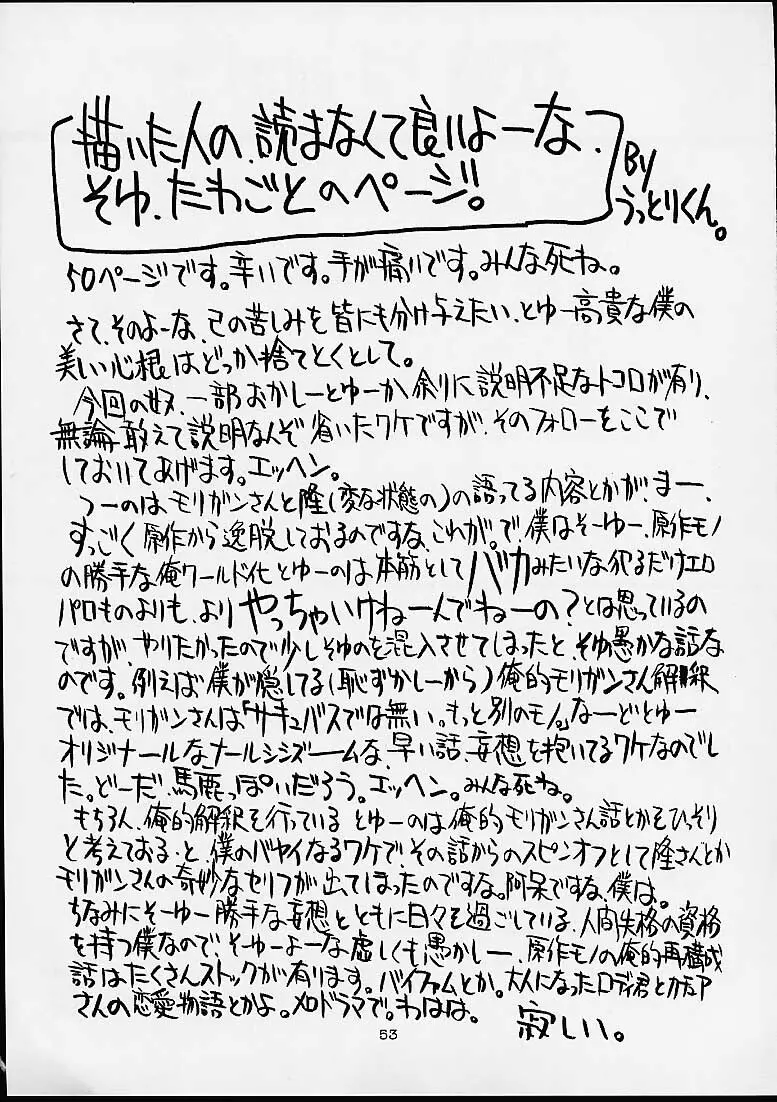 描いた人の、読まなくて良いよーな、
そゆ、たわごとのページ。
By
うっとりくん。
50ページです。辛いです。手が痛いです。みんな死ね。
さて、そのよーな、己の苦しみを皆にも分け与えたい、とゆー高貴な僕の
美しい心根はどっか捨てとくとして。
今回の奴、一部おかしーとゆーか、余りに説明不足なトコロが有り、
無論敢えて説明なんぞ省いたワケですが、そのフォローをここで
しておいてあげます。エッヘン。
つーのは、モリガンさんと隆(変な状態の)の語ってる内容とかが、まー、
すっごく原作から逸脱しておるのですな、これが。で、僕はそーゆー、原作モノ
の勝手な俺ワールド化とゆーのは本筋としてバカみたいな犯るだけエロ
パロものよりも、よりやっちゃいけねーんでねーの?とは思っているの
ですが、やりたかったので少しそゆのを混入させてしまったと、そゆ愚かな話な
のです。例えば僕が隠してる(恥ずかしーから)俺的モリガンさん解釈
では、モリガンさんは「サキュバスでは無い。もっと別のモノ。」なーどとゆー
オリジナールなナールシシズームな、早い話、妄想を抱いてるワケなのでし
た。どーだ、馬鹿っぽいだろう。エッヘン。みんな死ね。
もちろん、俺的解釈を行っているとゆーのは、俺的モリガンさん話とかをひっそり
と考えておる、と、僕のバヤイなるワケで、その話からのスピンオフとして隆さんとか
モリガンさんの奇妙なセリフが出てしまったのですな。阿呆ですな、僕は。
ちなみにそーゆー勝手な妄想とともに日々を過ごしている、人間失格の資格
を持つ僕なので、そーゆーよーな虚しくも愚かしー、原作モノの俺的再構成
話はたくさんストックが有ります。バイファムとか。大人になったロディ君とカチュア
さんの恋愛物語とかよ。メロドラマで。わはは。
寂しい。
53